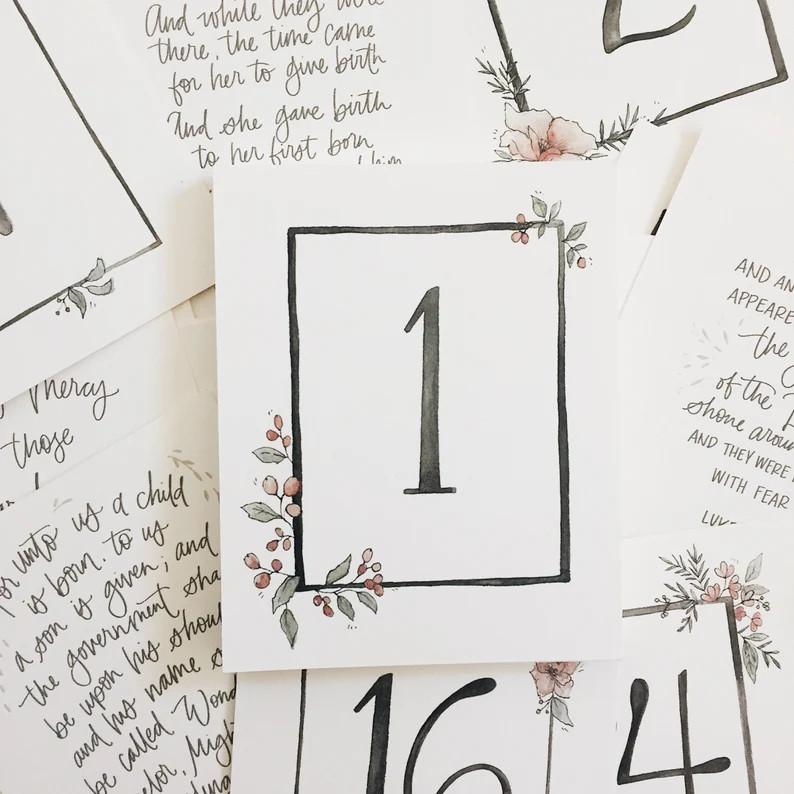 And while they were
there, the time came
for her to give birth
And she gave birth
to her first born
him
2
1
Mercy
those
For unto us a child
is born, to us
a son is given; and
the government sha
be upon his shoul
and his name s
be called, Wond
elor, Migh
AND AN
APPEARE
the
of the
shone aroun
AND THEY WERE
WITH FEAR
LUKE
16
4